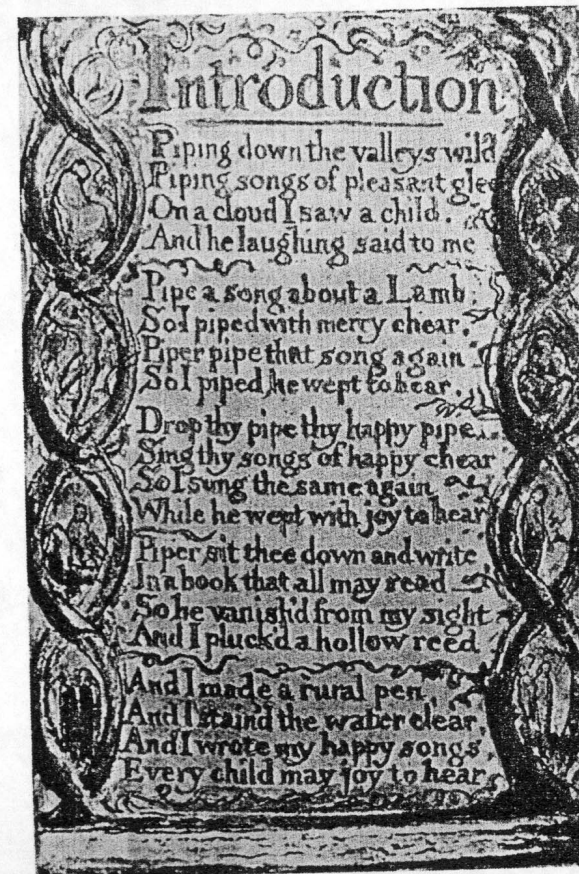 Introduction
Piping down the valleys wild
Piping songs of pleasant glee
On a cloud I saw a child.
And he laughing said to me
Pipe a song about a Lamb:
So I piped with merry chear,
Piper pipe that song again
So I piped, he wept to hear.
Drop thy pipe thy happy pipe
Sing thy songs of happy chear
So I sung the same again
While he wept with joy to hear
Piper sit thee down and write
In a book that all may read
So he vanish'd from my sight
And I pluck'd a hollow reed
And I made a rural pen,
And I stain'd the water clear,
And I wrote my happy songs
Every child may joy to hear